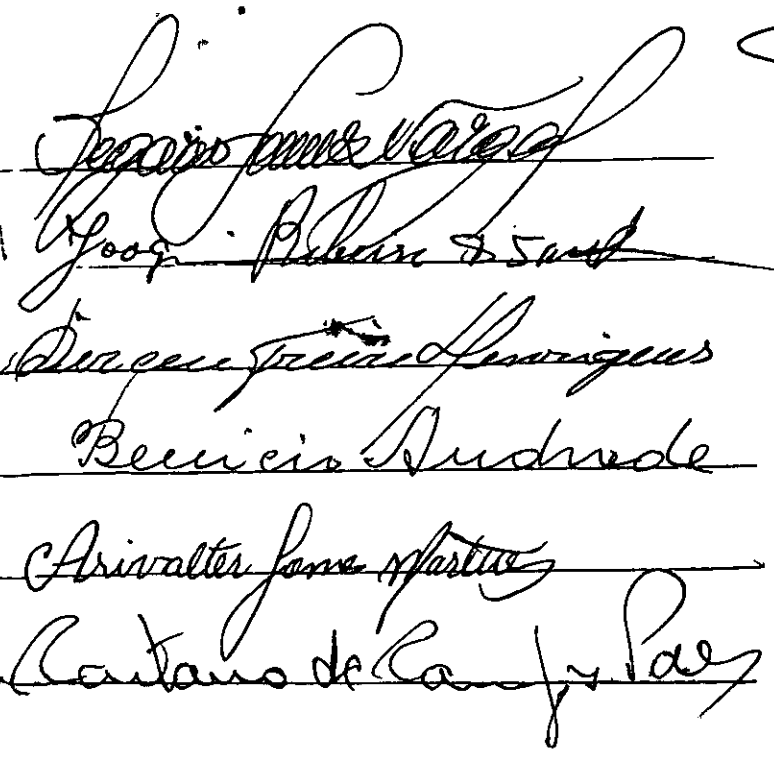 Gomes Vargas
Joaq. Ribeiro d Sant
Dirceu Freire Henriques
Benicio Andrade
Arivalter Gome Martins
Caetano de Campos Paes